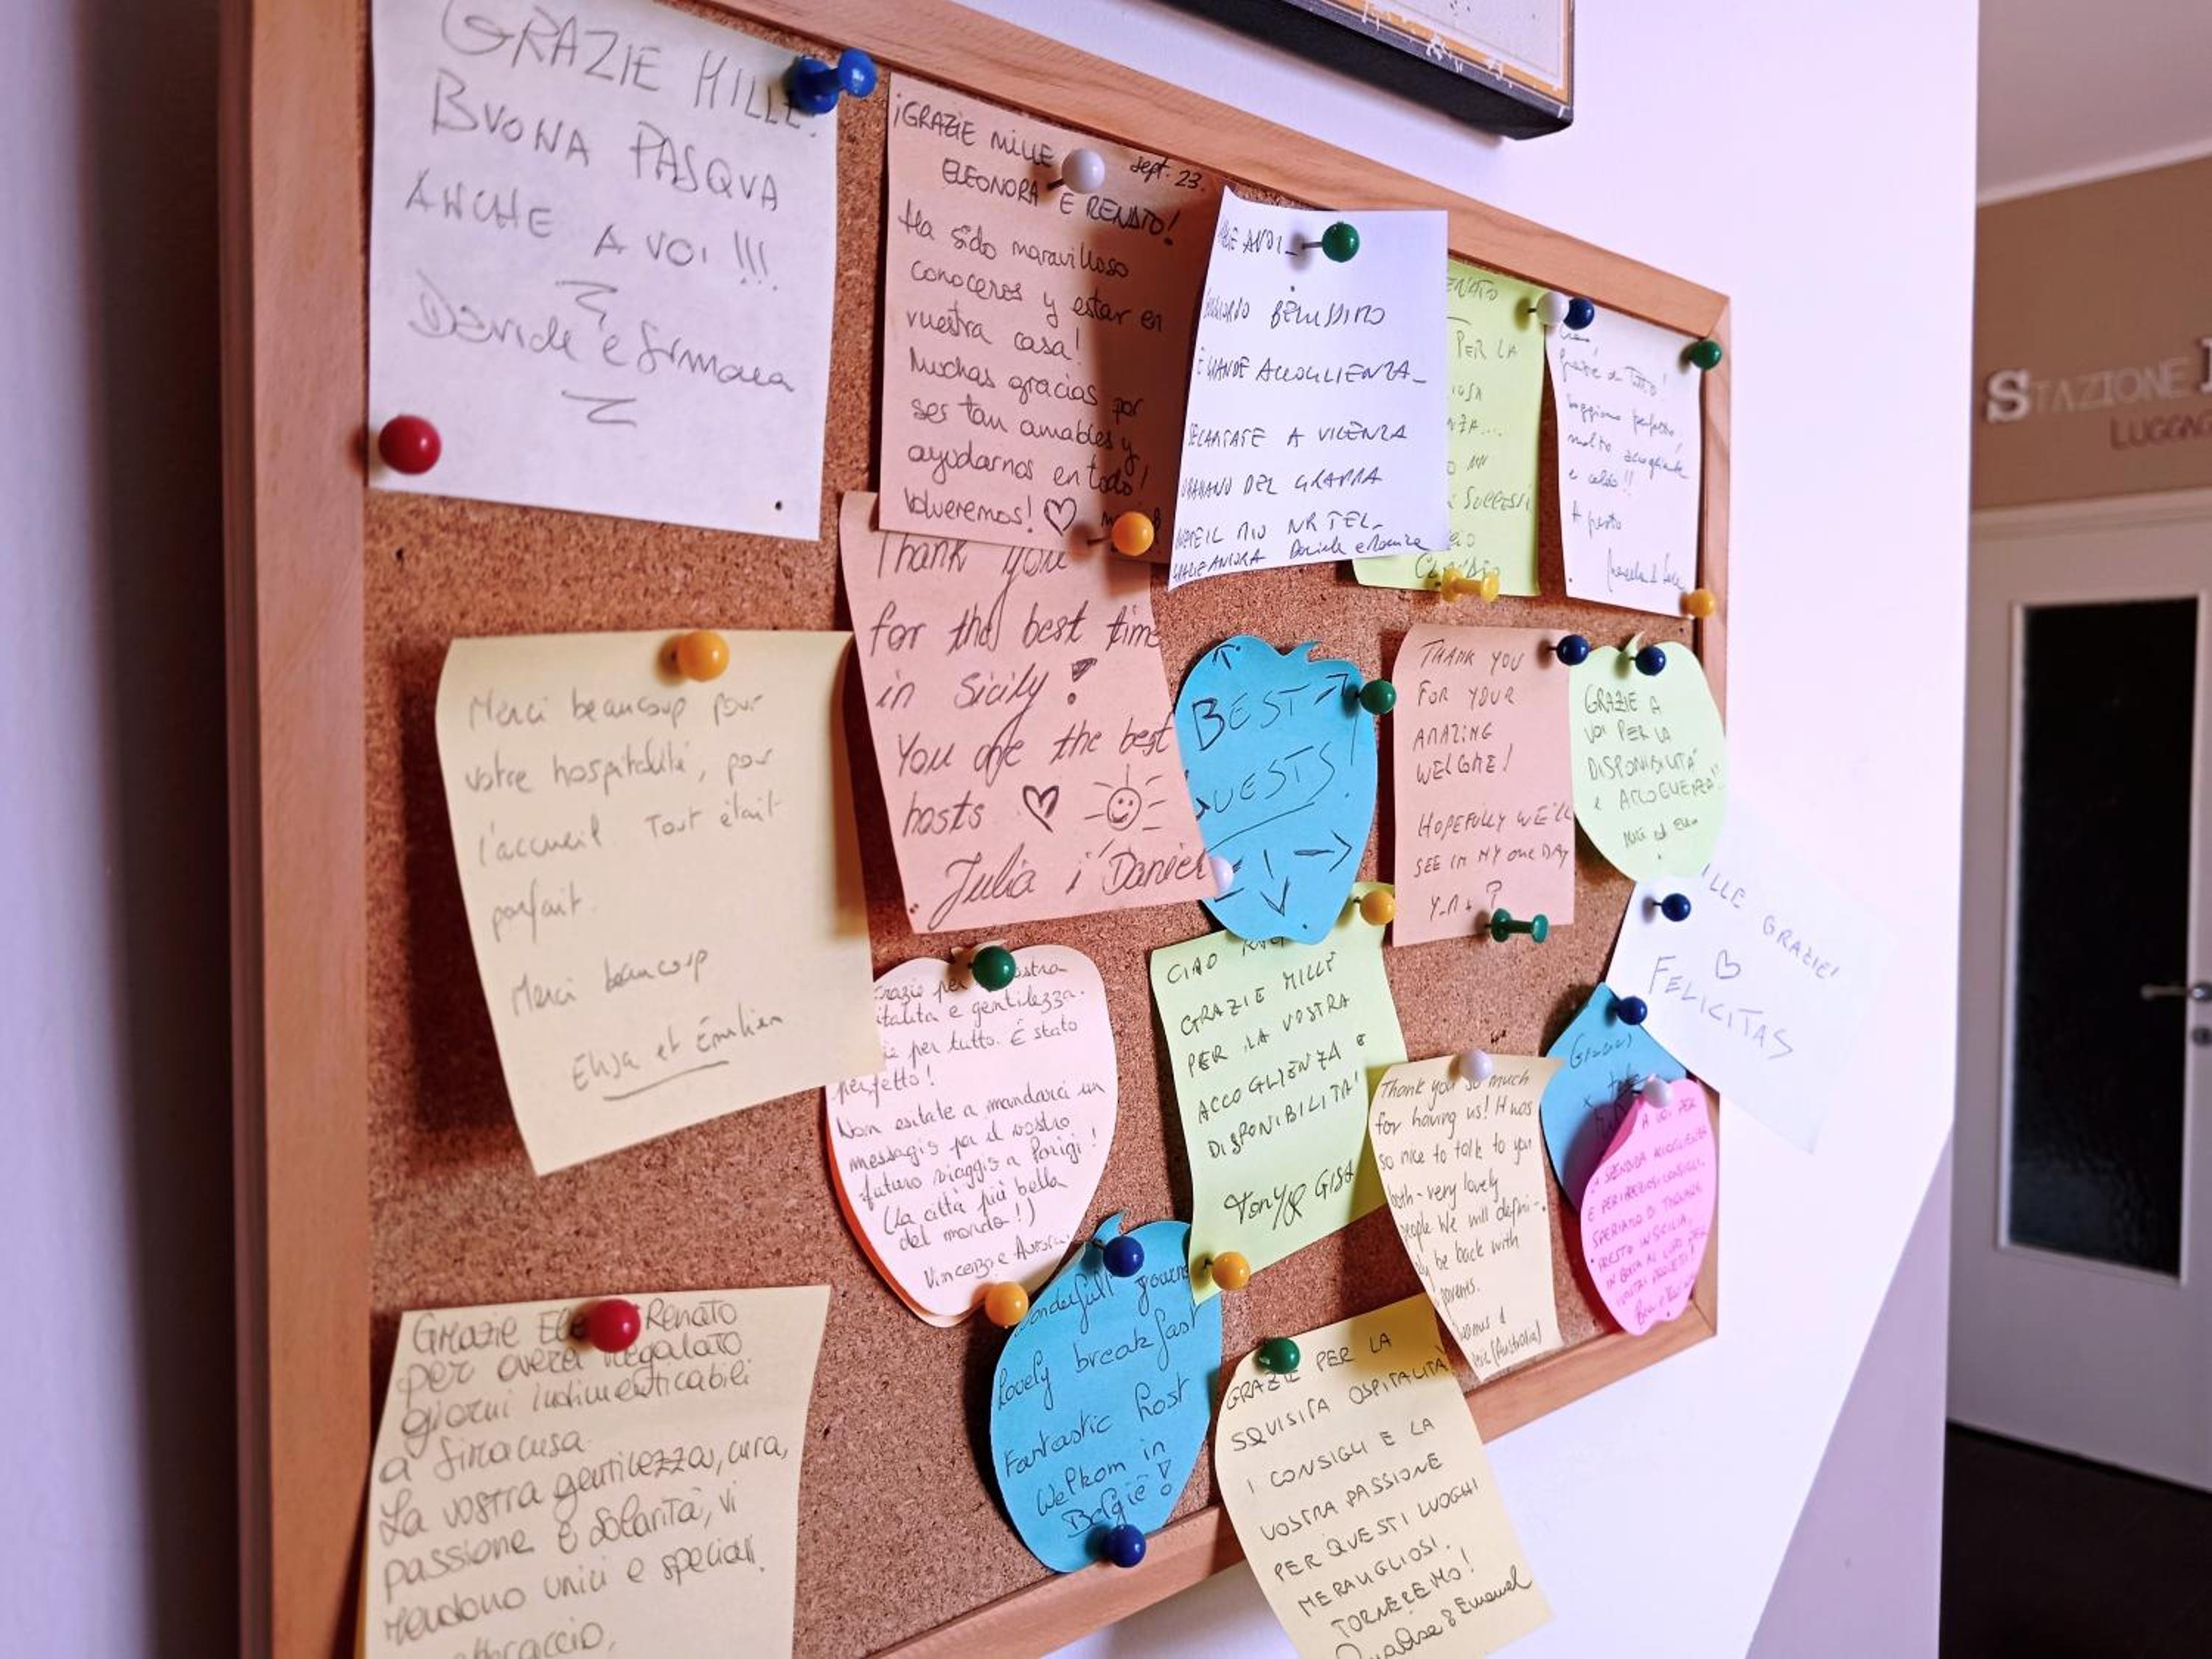 GRAZIE MILLE!
BUONA PASQUA
ANCHE A VOI !!!
Davide e Simona
¡GRAZIE MILLE
sept. 23.
ELEONORA E RENATO!
Ha sido maravilloso
conoceros y estar en
vuestra casa!
Muchas gracias por
ser tan amables y
ayudarnos en todo!
Volveremos! ♡
BELLISSIMO
GRANDE ACCOGLIENZA
A VICENZA
DEL GRAPPA
IL MIO NR TEL.
ANCORA Daniele e
PER LA
SUCCESSI
CLAUDIO
Ciao,
grazie di tutto!
Soggiorno perfetto,
molto accogliente
e caldo!!
A presto
Merci beaucoup pour
votre hospitalité, pour
l'accueil Tout était
parfait.
Merci beaucoup
Elisa et Émilien
Thank you
for the best time
in Sicily!
You are the best
hosts ♡
Julia i Daniel
BEST
GUESTS!
THANK YOU
FOR YOUR
AMAZING
WELCOME!
HOPEFULLY WE'LL
SEE IN NY ONE DAY
GRAZIE A
VOI PER LA
DISPONIBILITÀ
E ACCOGLIENZA!!
MILLE GRAZIE!
♡
FELICITAS
Grazie per vostra
e gentilezza.
per tutto. È stato
perfetto!
Non esitate a mandarci un
messaggio per il vostro
futuro viaggio a Parigi!
(La città più bella
del mondo!)
Vincenzo e Aurora
CIAO
GRAZIE MILLE
PER LA VOSTRA
ACCOGLIENZA E
DISPONIBILITA'
Tony & GISA
Thank you so much
for having us! It was
so nice to talk to you
both - very lovely
people We will defini-
be back with
parents.
(Australia)
Grazie
A VOI PER
SPLENDIDA ACCOGLIENZA
E PER I PREZIOSI CONSIGLI.
SPERIAMO DI TORNARE
PRESTO IN SICILIA,
Grazie Renato
per averci regalato
giorni indimenticabili
a Siracusa.
La vostra gentilezza, cura,
passione e solarità, vi
rendono unici e speciali.
abbraccio,
Wonderfull
Lovely breakfast
Fantastic host
Welkom in
België!
GRAZIE PER LA
SQUISITA OSPITALITÀ
I CONSIGLI E LA
VOSTRA PASSIONE
PER QUESTI LUOGHI
MERAVIGLIOSI.
TORNEREMO!
& Emanuel
STAZIONE